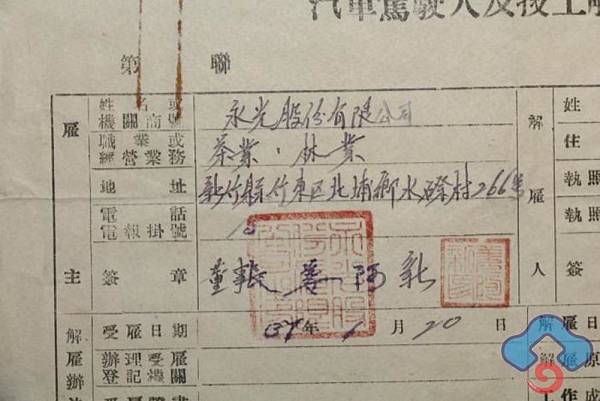 汽車駕駛人及技工解
第 聯
雇
主
姓名或
機關商號
永光股份有限公司
職業或
經營業務
茶業、林業
地址
新竹縣竹東区北埔鄉水磜村266号
電話
電報掛號
15
簽章
董事長 姜阿新
解雇人
姓
住
執照
執照
簽
解雇辦
受雇日期
37年1月20日
解雇日
辦理受雇
登記機關
解雇原
工作成